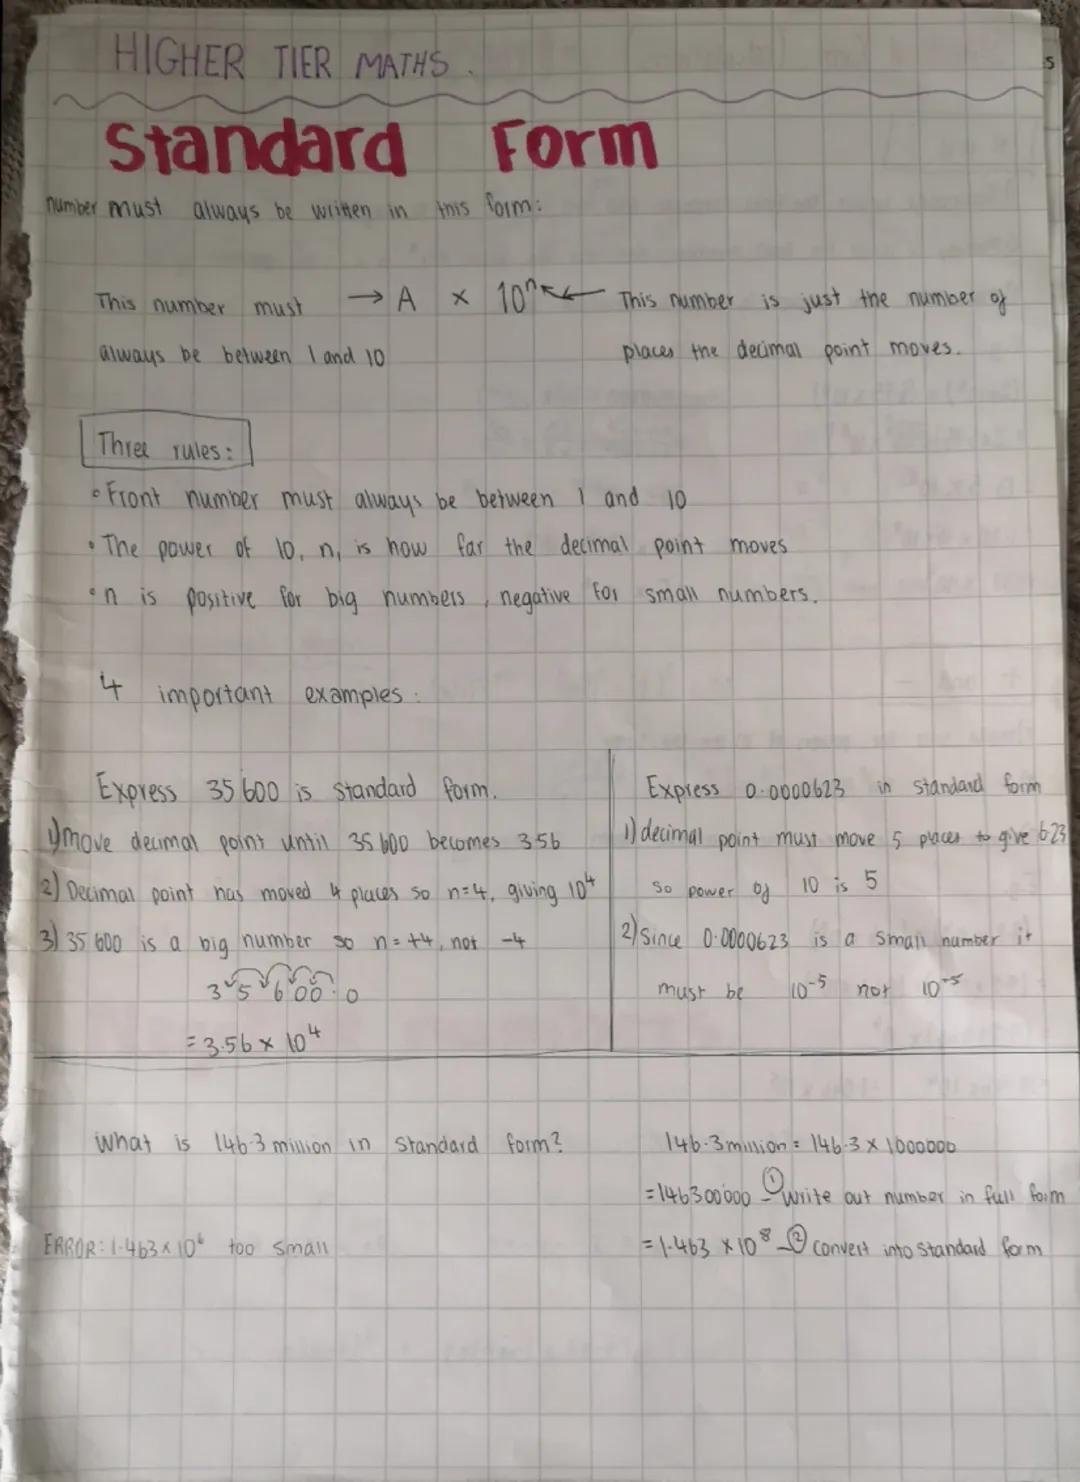 HIGHER TIER MATHS.
s
Standard Form
number must always be written in this form:
This number must → A × 10ⁿ ← This number is just the number of
always be between 1 and 10 places the decimal point moves.
Three rules:
• Front number must always be between 1 and 10
• The power of 10, n, is how far the decimal point moves
• n is positive for big numbers, negative for small numbers.
4 important examples:
Express 35 600 is standard form.
1) Move decimal point until 35 600 becomes 3.56
2) Decimal point has moved 4 places so n=4, giving 10⁴
3) 35 600 is a big number so n = +4, not -4
3 5 6 0 0 . 0
= 3.56 × 10⁴
Express 0.0000623 in standard form
1) decimal point must move 5 places to give 6.23
so power of 10 is 5
2) Since 0.0000623 is a small number it
must be 10⁻⁵ not 10⁻⁵
What is 146.3 million in standard form?
ERROR: 1.463 × 10⁶ too small
146.3 million = 146.3 × 1000000
= 146300000 - ① write out number in full form
= 1.463 × 10⁸ - ② convert into standard form